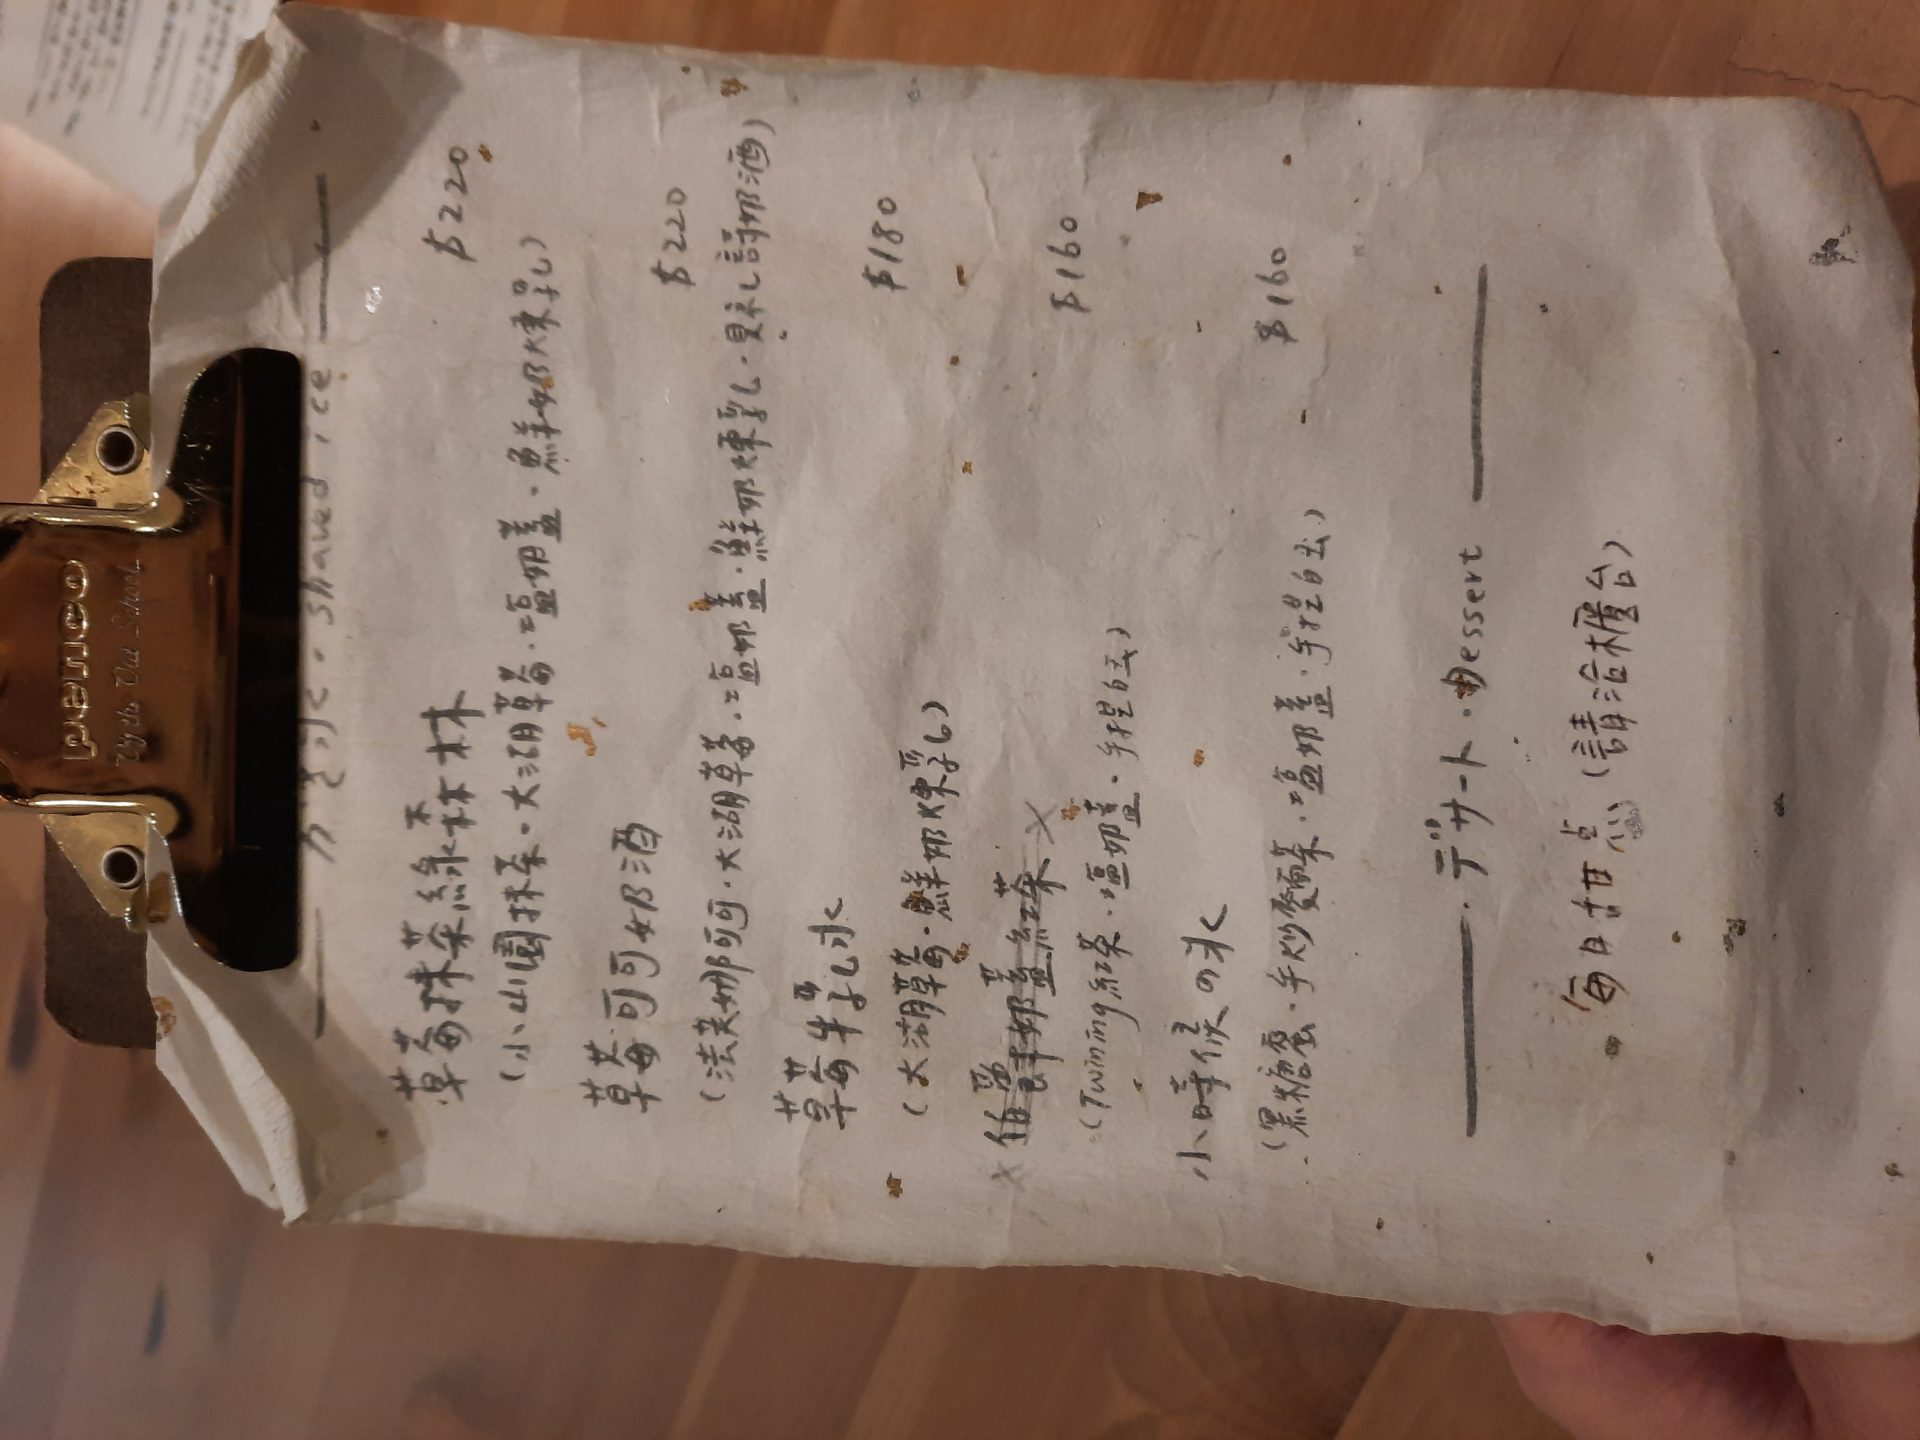 penco
By the Old School
かき氷・shaved ice
草莓抹茶綠森林 $220
(小山園抹茶・大湖草莓・塩奶蓋・鮮奶煉乳)
草莓可可奶酒 $220
(法芙娜可可・大湖草莓・塩奶蓋・鮮奶煉乳・貝礼詩奶酒)
草莓牛乳氷 $180
(大湖草莓・鮮奶煉乳)
伯爵奶蓋紅茶 $160
(Twining紅茶・塩奶蓋・手捏白玉)
小時候の氷 $160
(黑糖蜜・手炒麵茶・塩奶蓋・手捏白玉)
デザート・Dessert
每日甜点(請洽櫃台)